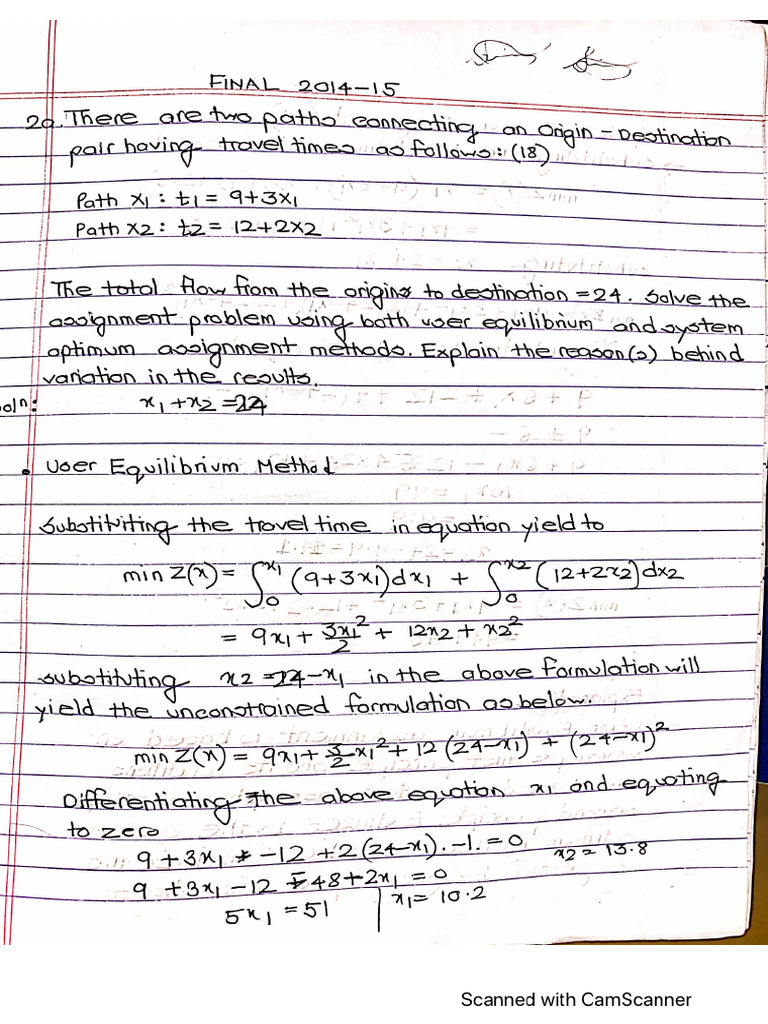 FINAL 2014-15
2a. There are two paths connecting an Origin - Destination
pair having travel times as follows: (18)
Path x1 : t1 = 9+3x1
Path x2 : t2 = 12+2x2
The total flow from the origins to destination = 24. Solve the
assignment problem using both user equilibrium and system
optimum assignment methods. Explain the reason(s) behind
variation in the results.
oln: x1+x2 = 24
• User Equilibrium Method
Substitiviting the travel time in equation yield to
min Z(x) = ∫0^x1 (9+3x1)dx1 + ∫0^x2 (12+2x2)dx2
= 9x1 + 3x1²/2 + 12x2 + x2²
substituting x2 = 24-x1 in the above formulation will
yield the unconstrained formulation as below.
min Z(x) = 9x1 + 3/2 x1² + 12(24-x1) + (24-x1)²
Differentiating the above equation x1 and equating
to zero
9 + 3x1 + -12 + 2(24-x1).-1. = 0 x2 = 13.8
9 + 3x1 - 12 - 48 + 2x1 = 0
5x1 = 51 | x1 = 10.2
Scanned with CamScanner